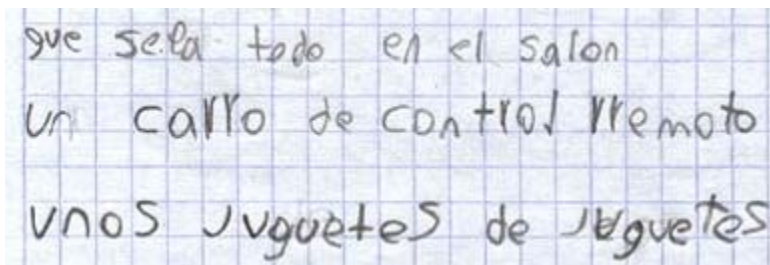 que sela todo en el salon
un carro de control rremoto
unos juguetes de juguetes